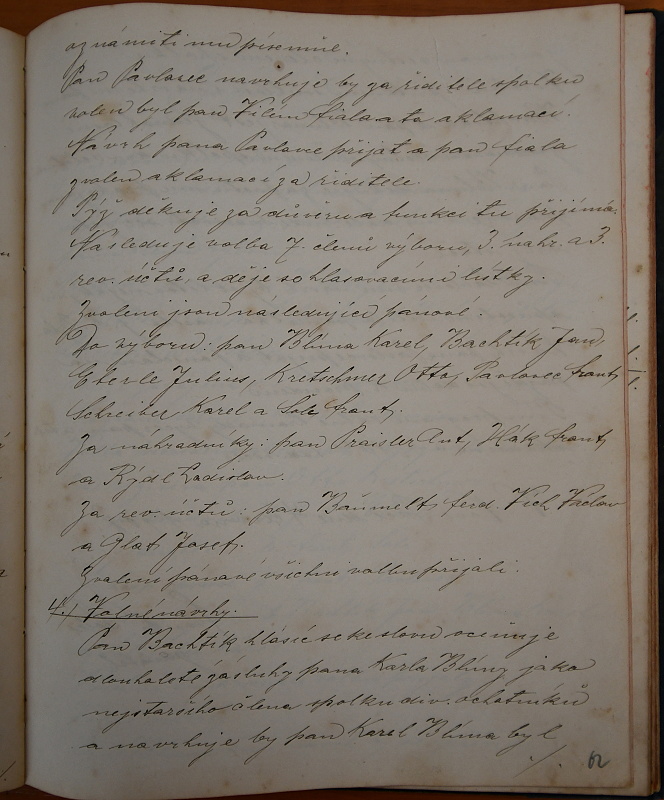 oznámiti mu písemně.
Pan Pavlovec navrhuje by za řiditele spolku
volen byl pan Vilém Fiala a to aklamací.
Návrh pana Pavlovce přijat a pan Fiala
zvolen aklamací za řiditele.
Týž děkuje za důvěru a funkci tu přijímá.
Následuje volba 7. členů výboru, 3. náhr. a 3.
rev. účtů, a děje se hlasovacími lístky.
Zvoleni jsou následující pánové.
Do výboru: pan Blíma Karel, Bachtík Jan,
Eberle Julius, Kretschmer Otto, Pavlovec Frant,
Schreiber Karel a Frant.
Za náhradníky: pan Praisler Ant, Hák Frant,
a Rýdl Ladislav.
Za rev. účtů: pan Bäumelt Ferd. Vích Václav
a Glat Josef.
Zvolení pánové všichni volbu přijali.
4.) Volné návrhy.
Pan Bachtík hlásíc se ke slovu oceňuje
dlouholeté zásluhy pana Karla Blímy jako
nejstaršího člena spolku div. ochotníků
a navrhuje by pan Karel Blíma byl
./.
62